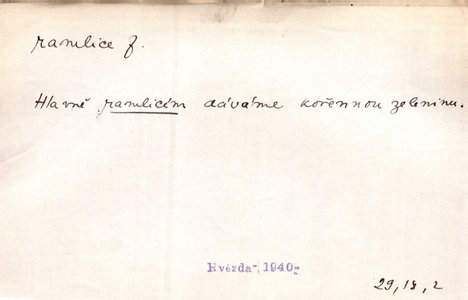 ramlice f.
Hlavně ramlicím dáváme kořennou zeleninu.
Hvězda 1940
29, 18, 2